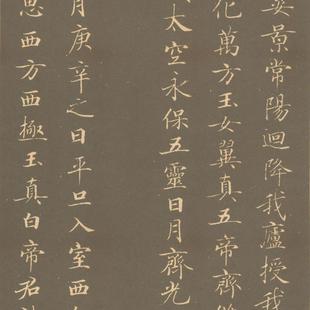 景常陽迴降我廬授我
化萬方玉女翼真五帝齊
太空永保五靈日月齊光
月庚辛之日平旦入室西
思西方西極玉真白帝君